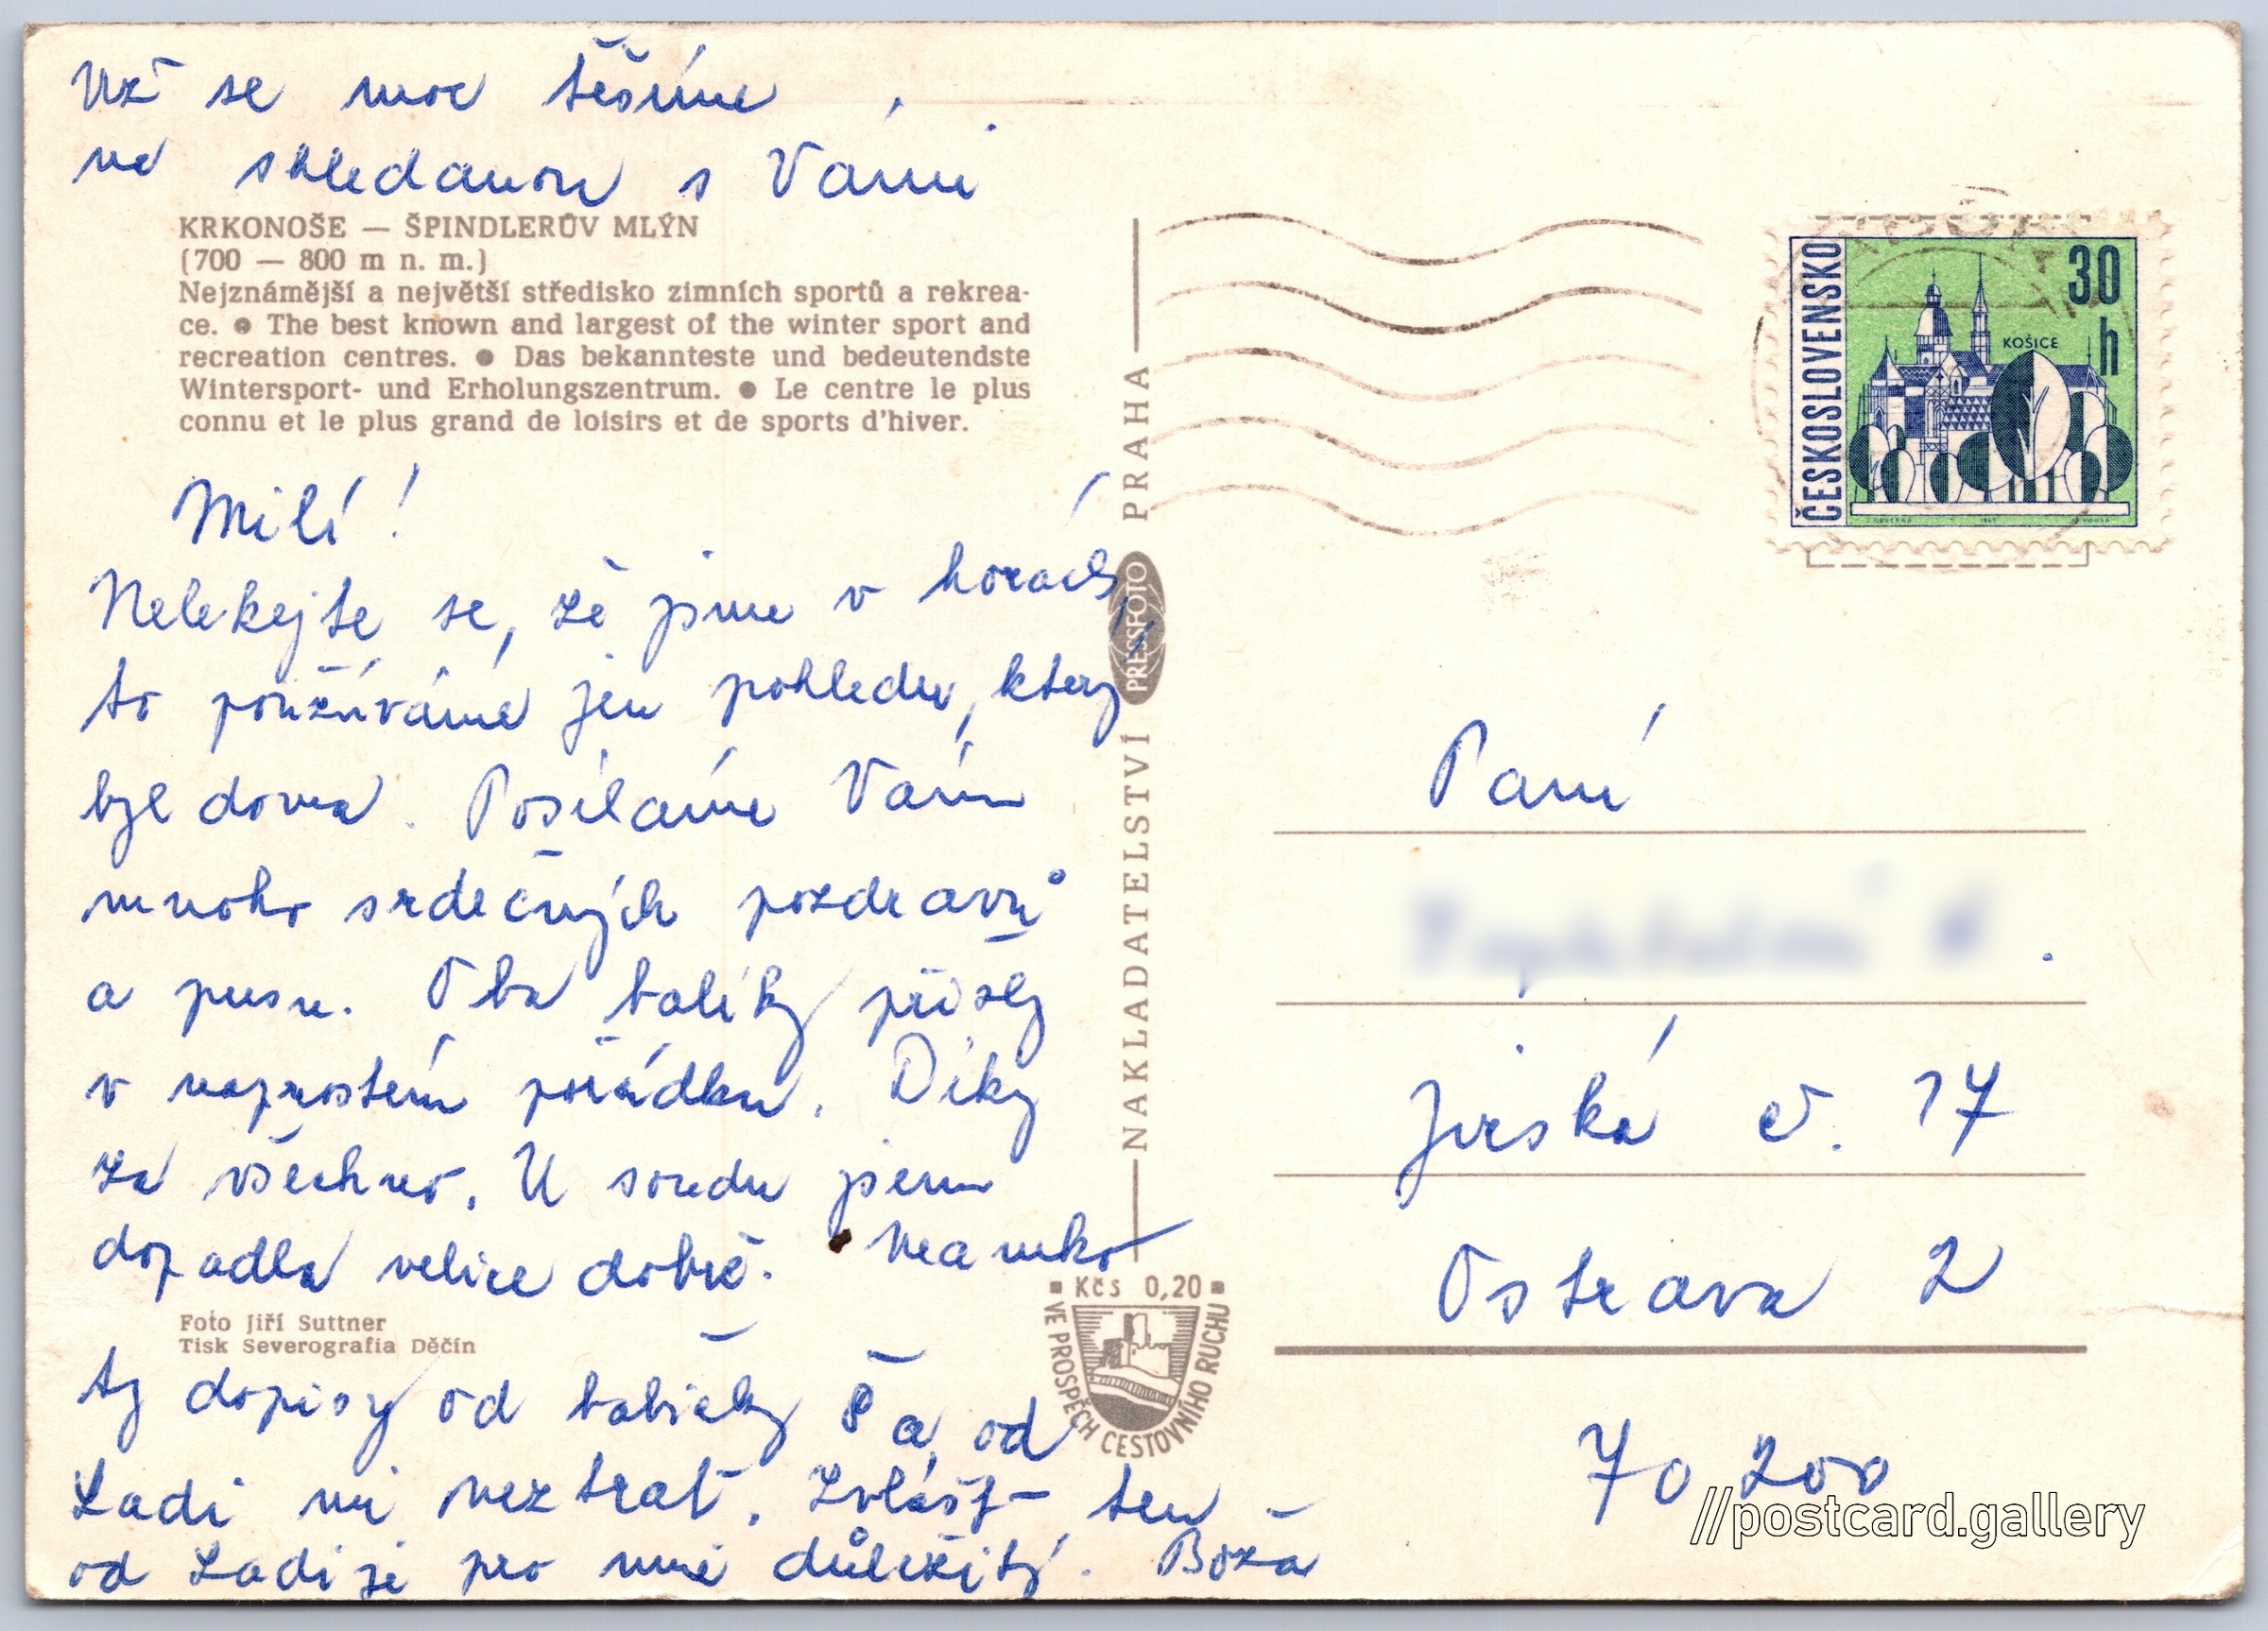 Už se moc těšíme
na shledanou s Vámi
KRKONOŠE — ŠPINDLERŮV MLÝN
(700 — 800 m n. m.)
Nejznámější a největší středisko zimních sportů a rekrea-
ce. ● The best known and largest of the winter sport and
recreation centres. ● Das bekannteste und bedeutendste
Wintersport- und Erholungszentrum. ● Le centre le plus
connu et le plus grand de loisirs et de sports d'hiver.
Milí!
Nelekejte se, že jsme v horách,
to používáme jen pohledu, který
byl doma. Posíláme Vám
mnoho srdečných pozdravů
a pusu. Oba balíky přišly
v naprostém pořádku. Díky
za všechno. U soudu jsem
dopadla velice dobře.
Foto Jiří Suttner
Tisk Severografia Děčín
ty dopisy od babičky Š a od
Ladi mi neztrať. Zvlášť ten
od Ladi je pro mně důležitý. Boža
NAKLADATELSTVÍ PRESSFOTO PRAHA
Kčs 0,20
VE PROSPĚCH CESTOVNÍHO RUCHU
ČESKOSLOVENSKO
30 h
KOŠICE
Paní
Jirská č. 17
Ostrava 2
70 200
//postcard.gallery